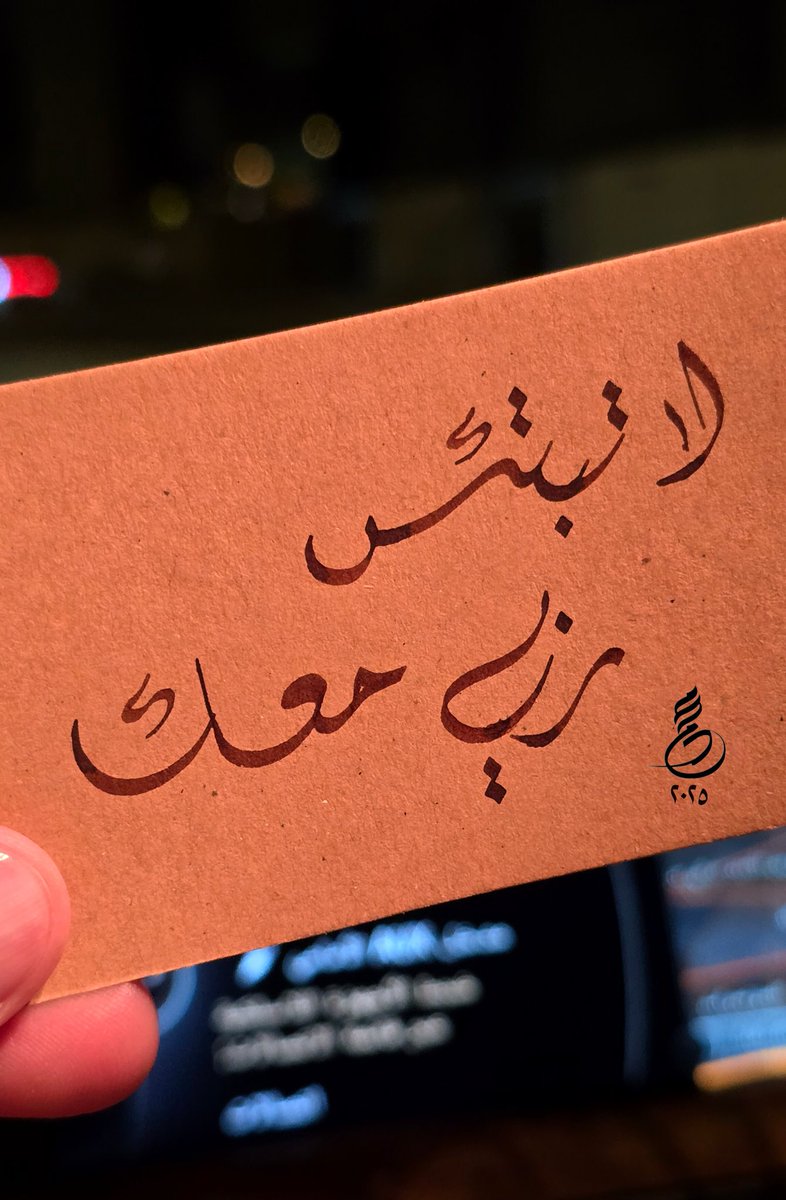 لا تبتئس
ربي معك
٢٠٢٥